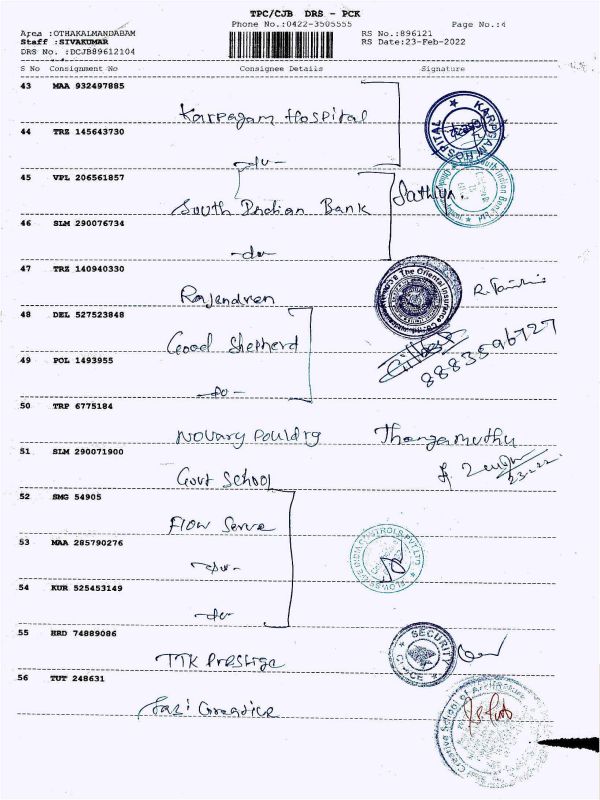 TPC/CJB DRS - PCK
Phone No.:0422-3505555 Page No.:4
Area :OTHAKALMANDABAM RS No.:896121
Staff :SIVAKUMAR RS Date:23-Feb-2022
DRS No. :DCJB89612104
S No Consignment No Consignee Details Signature
43 MAA 932497885
Karpagam Hospital
KARPAGAM HOSPITAL
44 TRZ 145643730
-do-
45 VPL 206561857
South Indian Bank Sathiya.
46 SLM 290076734
-do-
47 TRZ 140940330
The Oriental Insurance
Rajendren
48 DEL 527523848
Good Shepherd
8883596727
49 POL 1493955
-do-
50 TRP 6775184
Novary Pouldry Thangamuthu
51 SLM 290071900
Govt School
52 SMG 54905
Flow Serve
53 MAA 285790276
FLOWSERVE INDIA CONTROLS PVT LTD
-do-
54 KUR 525453149
-do-
55 HRD 74889086
SECURITY
TTK Prestige
56 TUT 248631
Creative School of